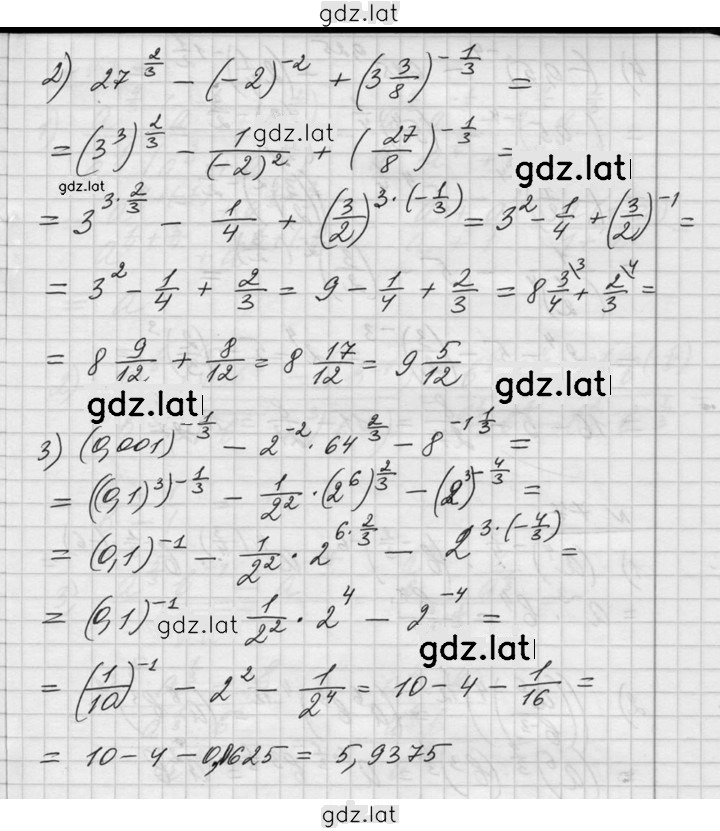 gdz.lat
2) 27^(2/3) − (−2)^(−2) + (3 3/8)^(−1/3) =
= (3^3)^(2/3) − 1/(−2)^2 + (27/8)^(−1/3) =
gdz.lat
gdz.lat
gdz.lat
= 3^(3·2/3) − 1/4 + (3/2)^(3·(−1/3)) = 3^2 − 1/4 + (3/2)^(−1) =
= 3^2 − 1/4 + 2/3 = 9 − 1/4 + 2/3 = 8 3/4\3 + 2/3\4 =
= 8 9/12 + 8/12 = 8 17/12 = 9 5/12
gdz.lat
gdz.lat
3) (0,001)^(−1/3) − 2^(−2) · 64^(2/3) − 8^(−1 1/3) =
= ((0,1)^3)^(−1/3) − 1/2^2 · (2^6)^(2/3) − (2^3)^(−4/3) =
= (0,1)^(−1) − 1/2^2 · 2^(6·2/3) − 2^(3·(−4/3)) =
= (0,1)^(−1) gdz.lat 1/2^2 · 2^4 − 2^(−4) =
gdz.lat
= (1/10)^(−1) − 2^2 − 1/2^4 = 10 − 4 − 1/16 =
= 10 − 4 − 0,0625 = 5,9375
gdz.lat